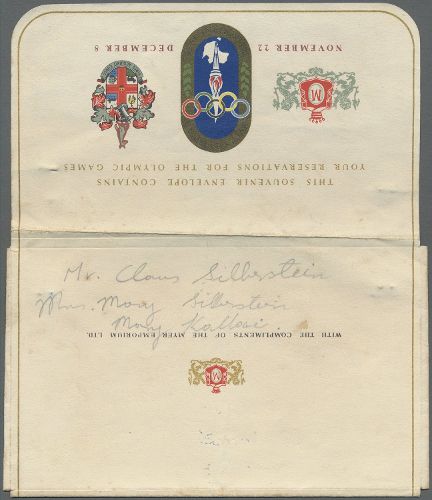 NOVEMBER 22
DECEMBER 8
M
THIS SOUVENIR ENVELOPE CONTAINS
YOUR RESERVATIONS FOR THE OLYMPIC GAMES
Mr. Claus Silberstein
Mrs. Mary Silberstein
Mary
WITH THE COMPLIMENTS OF THE MYER EMPORIUM LTD.
M